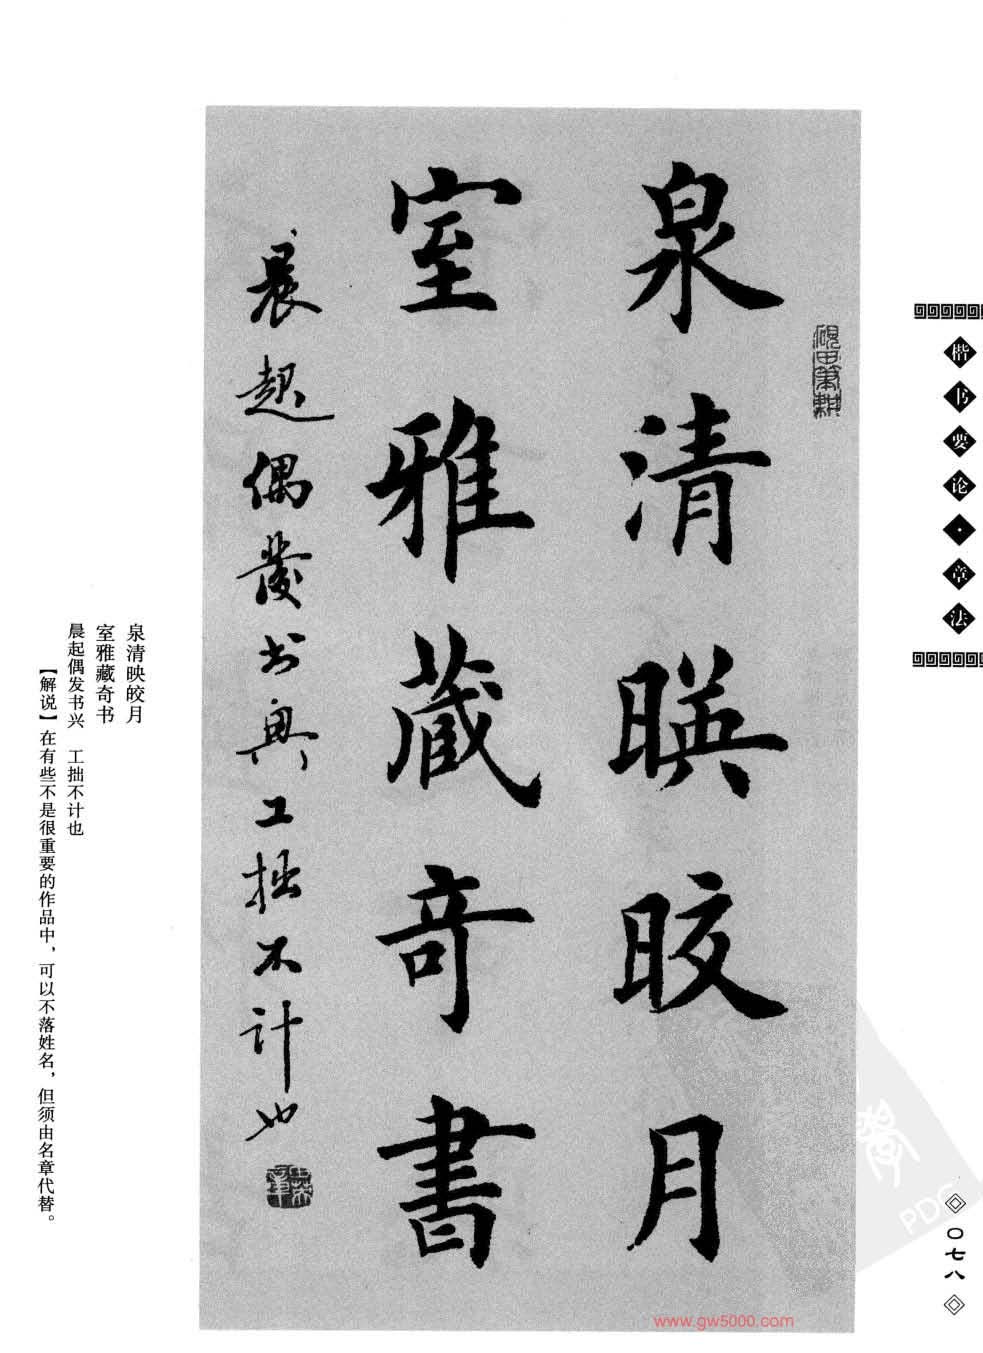 楷书要论·章法
硯田筆耕
泉清暎晈月
室雅藏奇書
晨起偶發书興工拙不計也
泉清映皎月
室雅藏奇书
晨起偶发书兴　工拙不计也
【解说】在有些不是很重要的作品中，可以不落姓名，但须由名章代替。
〇七八
PDG
www.gw5000.com